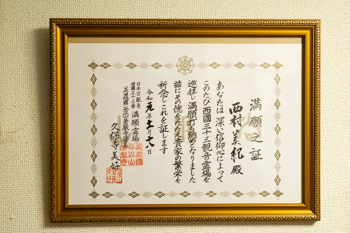 満願之証
西村美紀殿
あなたは深い信仰心によって
このたび西國三十三観音霊場を
巡拝満願打ち納めとなりました
茲にその徳をたたえ貴家の繁栄を
祈念しこれを証します
令和元年十一月十八日
満願霊場